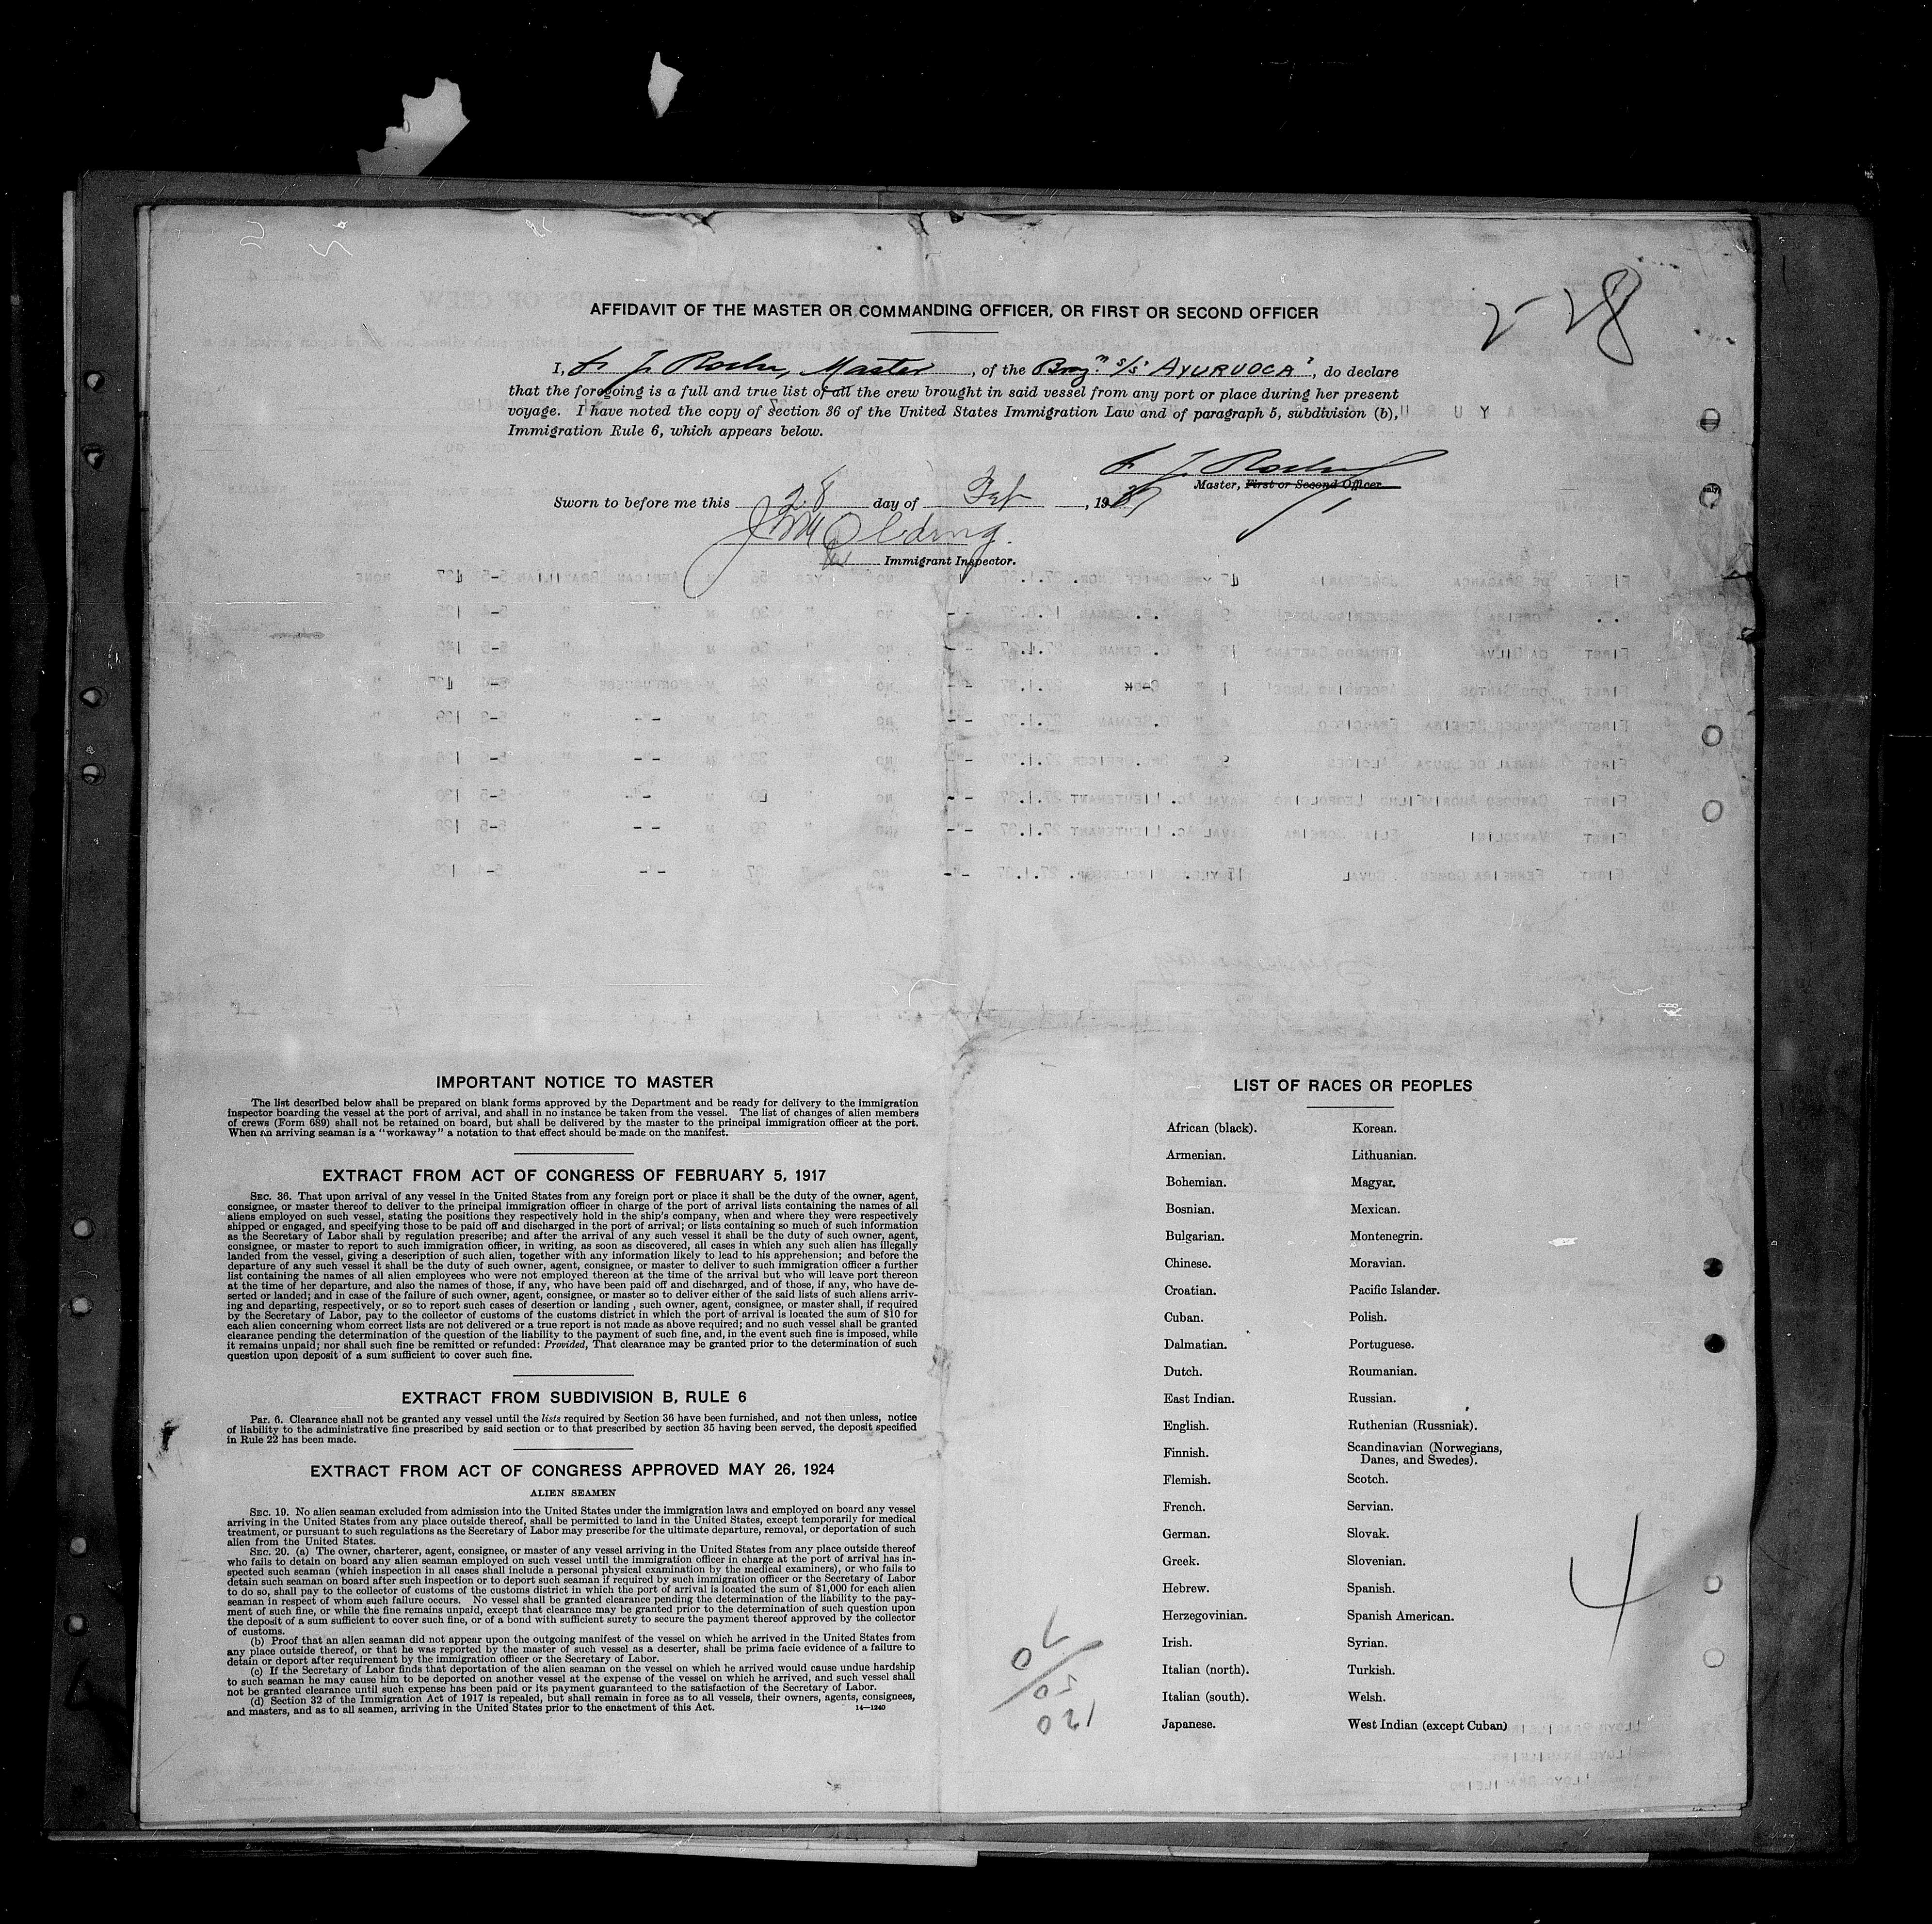 2-28
AFFIDAVIT OF THE MASTER OR COMMANDING OFFICER, OR FIRST OR SECOND OFFICER
I, J. Master, of the s/s "AYURUOCA", do declare
that the foregoing is a full and true list of all the crew brought in said vessel from any port or place during her present
voyage. I have noted the copy of section 36 of the United States Immigration Law and of paragraph 5, subdivision (b),
Immigration Rule 6, which appears below.
Master, First or Second Officer
Sworn to before me this 28 day of Feb, 1937
Immigrant Inspector.
IMPORTANT NOTICE TO MASTER
The list described below shall be prepared on blank forms approved by the Department and be ready for delivery to the immigration
inspector boarding the vessel at the port of arrival, and shall in no instance be taken from the vessel. The list of changes of alien members
of crews (Form 689) shall not be retained on board, but shall be delivered by the master to the principal immigration officer at the port.
When an arriving seaman is a "workaway" a notation to that effect should be made on the manifest.
EXTRACT FROM ACT OF CONGRESS OF FEBRUARY 5, 1917
SEC. 36. That upon arrival of any vessel in the United States from any foreign port or place it shall be the duty of the owner, agent,
consignee, or master thereof to deliver to the principal immigration officer in charge of the port of arrival lists containing the names of all
aliens employed on such vessel, stating the positions they respectively hold in the ship's company, when and where they were respectively
shipped or engaged, and specifying those to be paid off and discharged in the port of arrival; or lists containing so much of such information
as the Secretary of Labor shall by regulation prescribe; and after the arrival of any such vessel it shall be the duty of such owner, agent,
consignee, or master to report to such immigration officer, in writing, as soon as discovered, all cases in which any such alien has illegally
landed from the vessel, giving a description of such alien, together with any information likely to lead to his apprehension; and before the
departure of any such vessel it shall be the duty of such owner, agent, consignee, or master to deliver to such immigration officer a further
list containing the names of all alien employees who were not employed thereon at the time of the arrival but who will leave port thereon
at the time of her departure, and also the names of those, if any, who have been paid off and discharged, and of those, if any, who have de-
serted or landed; and in case of the failure of such owner, agent, consignee, or master so to deliver either of the said lists of such aliens arriv-
ing and departing, respectively, or so to report such cases of desertion or landing , such owner, agent, consignee, or master shall, if required
by the Secretary of Labor, pay to the collector of customs of the customs district in which the port of arrival is located the sum of $10 for
each alien concerning whom correct lists are not delivered or a true report is not made as above required; and no such vessel shall be granted
clearance pending the determination of the question of the liability to the payment of such fine, and, in the event such fine is imposed, while
it remains unpaid; nor shall such fine be remitted or refunded: Provided, That clearance may be granted prior to the determination of such
question upon deposit of a sum sufficient to cover such fine.
EXTRACT FROM SUBDIVISION B, RULE 6
Par. 6. Clearance shall not be granted any vessel until the lists required by Section 36 have been furnished, and not then unless, notice
of liability to the administrative fine prescribed by said section or to that prescribed by section 35 having been served, the deposit specified
in Rule 22 has been made.
EXTRACT FROM ACT OF CONGRESS APPROVED MAY 26, 1924
ALIEN SEAMEN
SEC. 19. No alien seaman excluded from admission into the United States under the immigration laws and employed on board any vessel
arriving in the United States from any place outside thereof, shall be permitted to land in the United States, except temporarily for medical
treatment, or pursuant to such regulations as the Secretary of Labor may prescribe for the ultimate departure, removal, or deportation of such
alien from the United States.
SEC. 20. (a) The owner, charterer, agent, consignee, or master of any vessel arriving in the United States from any place outside thereof
who fails to detain on board any alien seaman employed on such vessel until the immigration officer in charge at the port of arrival has in-
spected such seaman (which inspection in all cases shall include a personal physical examination by the medical examiners), or who fails to
detain such seaman on board after such inspection or to deport such seaman if required by such immigration officer or the Secretary of Labor
to do so, shall pay to the collector of customs of the customs district in which the port of arrival is located the sum of $1,000 for each alien
seaman in respect of whom such failure occurs. No vessel shall be granted clearance pending the determination of the liability to the pay-
ment of such fine, or while the fine remains unpaid, except that clearance may be granted prior to the determination of such question upon
the deposit of a sum sufficient to cover such fine, or of a bond with sufficient surety to secure the payment thereof approved by the collector
of customs.
(b) Proof that an alien seaman did not appear upon the outgoing manifest of the vessel on which he arrived in the United States from
any place outside thereof, or that he was reported by the master of such vessel as a deserter, shall be prima facie evidence of a failure to
detain or deport after requirement by the immigration officer or the Secretary of Labor.
(c) If the Secretary of Labor finds that deportation of the alien seaman on the vessel on which he arrived would cause undue hardship
to such seaman he may cause him to be deported on another vessel at the expense of the vessel on which he arrived, and such vessel shall
not be granted clearance until such expense has been paid or its payment guaranteed to the satisfaction of the Secretary of Labor.
(d) Section 32 of the Immigration Act of 1917 is repealed, but shall remain in force as to all vessels, their owners, agents, consignees,
and masters, and as to all seamen, arriving in the United States prior to the enactment of this Act.
14—1240
LIST OF RACES OR PEOPLES
African (black). Korean.
Armenian. Lithuanian.
Bohemian. Magyar.
Bosnian. Mexican.
Bulgarian. Montenegrin.
Chinese. Moravian.
Croatian. Pacific Islander.
Cuban. Polish.
Dalmatian. Portuguese.
Dutch. Roumanian.
East Indian. Russian.
English. Ruthenian (Russniak).
Finnish. Scandinavian (Norwegians,
Danes, and Swedes).
Flemish. Scotch.
French. Servian.
German. Slovak.
Greek. Slovenian.
Hebrew. Spanish.
Herzegovinian. Spanish American.
Irish. Syrian.
Italian (north). Turkish.
Italian (south). Welsh.
Japanese. West Indian (except Cuban)
4